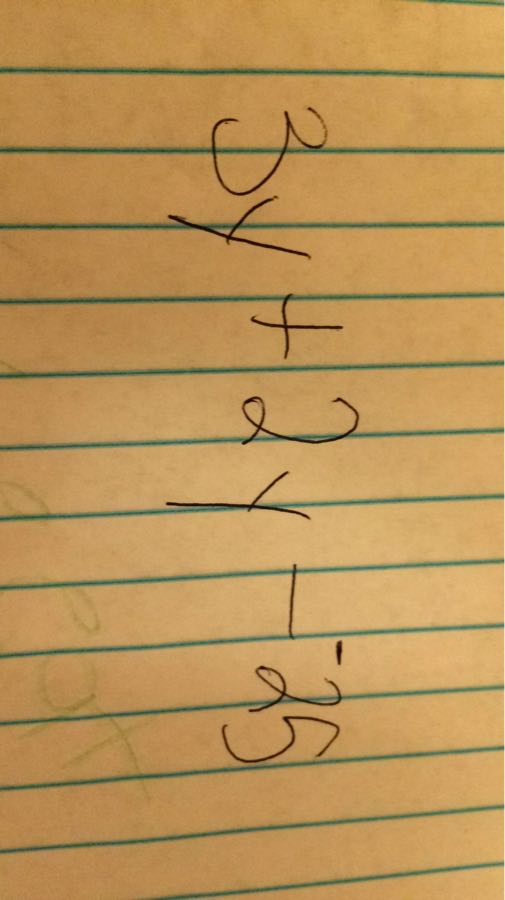 3y + 2y - ⁻25